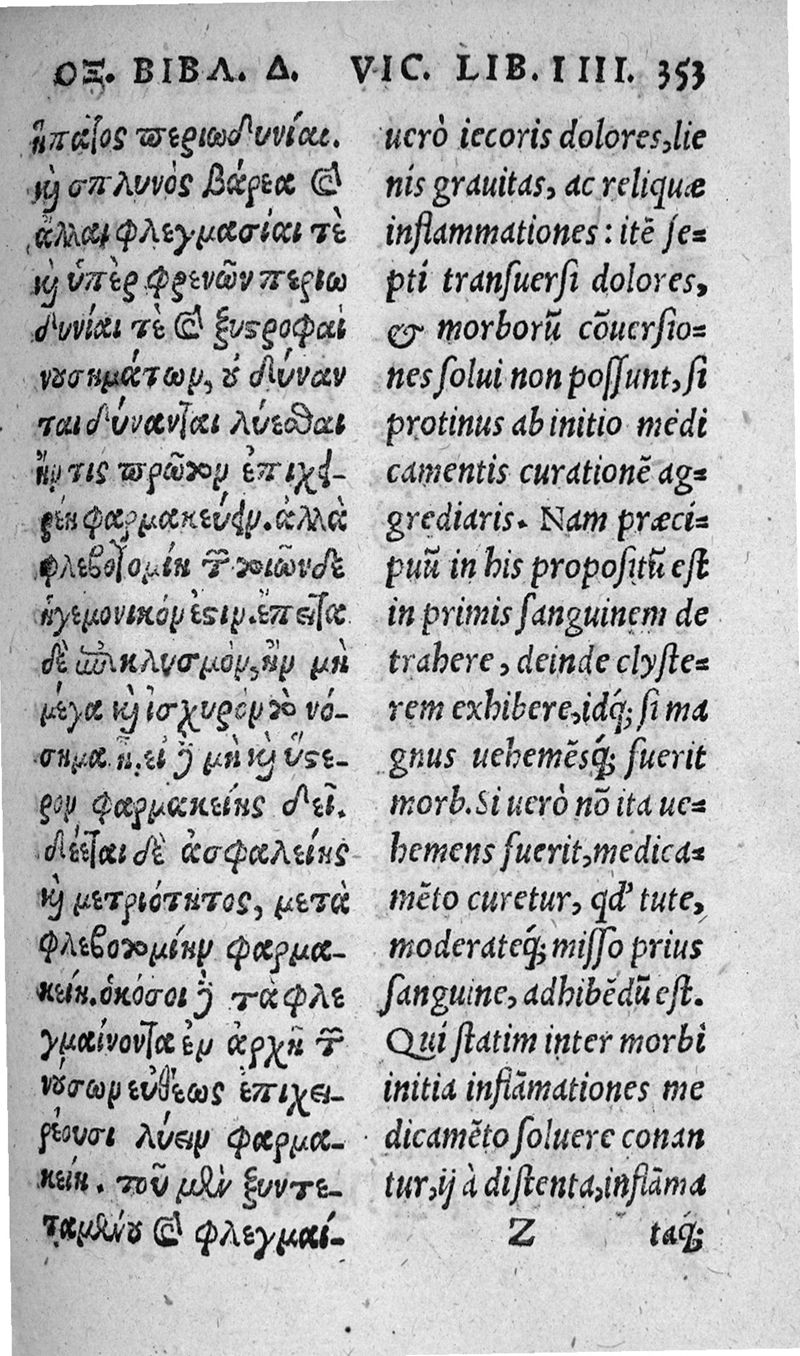 ΟΞ. ΒΙΒΛ. Δ. VIC. LIB. IIII. 353
ἥπατος περιωδυνίαι.
καὶ σπλυνὸς βάρεα καὶ
ἄλλαι φλεγμασίαι τὲ
καὶ ὑπὲρ φρενῶν περιω
δυνίαι τὲ καὶ ξυστροφαὶ
νουσημάτων, οὐ δύναν
ται δύνανται λύεσθαι
ἤν τις πρῶτον ἐπιχει-
ρέη φαρμακεύειν. ἀλλὰ
φλεβοτομίη τῶν τοιῶνδε
ἡγεμονικόν ἐστιν. ἔπειτα
δὲ ἐπὶ κλυσμὸν, ἢν μὴ
μέγα καὶ ἰσχυρὸν τὸ νό-
σημα ᾖ. εἰ δὲ μὴ καὶ ὕστε-
ρον φαρμακείης δεῖ.
δέεται δὲ ἀσφαλείης
καὶ μετριότητος, μετὰ
φλεβοτομίην φαρμα-
κείη. ὁκόσοι δὲ τὰ φλε
γμαίνοντα ἐν ἀρχῇ τῶν
νούσων εὐθέως ἐπιχει-
ρέουσι λύειν φαρμα-
κείη. τοῦ μὲν ξυντε-
ταμένου καὶ φλεγμαί-
uerò iecoris dolores, lie
nis grauitas, ac reliquæ
inflammationes: itē se=
pti transuersi dolores,
& morborū cōuersio=
nes solui non possunt, si
protinus ab initio medi
camentis curationē ag=
grediaris. Nam præci=
puū in his propositū est
in primis sanguinem de
trahere, deinde clyste=
rem exhibere, idq́; si ma
gnus uehemēsq́; fuerit
morb. Si uerò nō ita ue=
hemens fuerit, medica=
mēto curetur, qd' tute,
moderateq́; misso prius
sanguine, adhibēdū est.
Qui statim inter morbi
initia inflāmationes me
dicamēto soluere conan
tur, ij à distenta, inflāma
Z taq́;